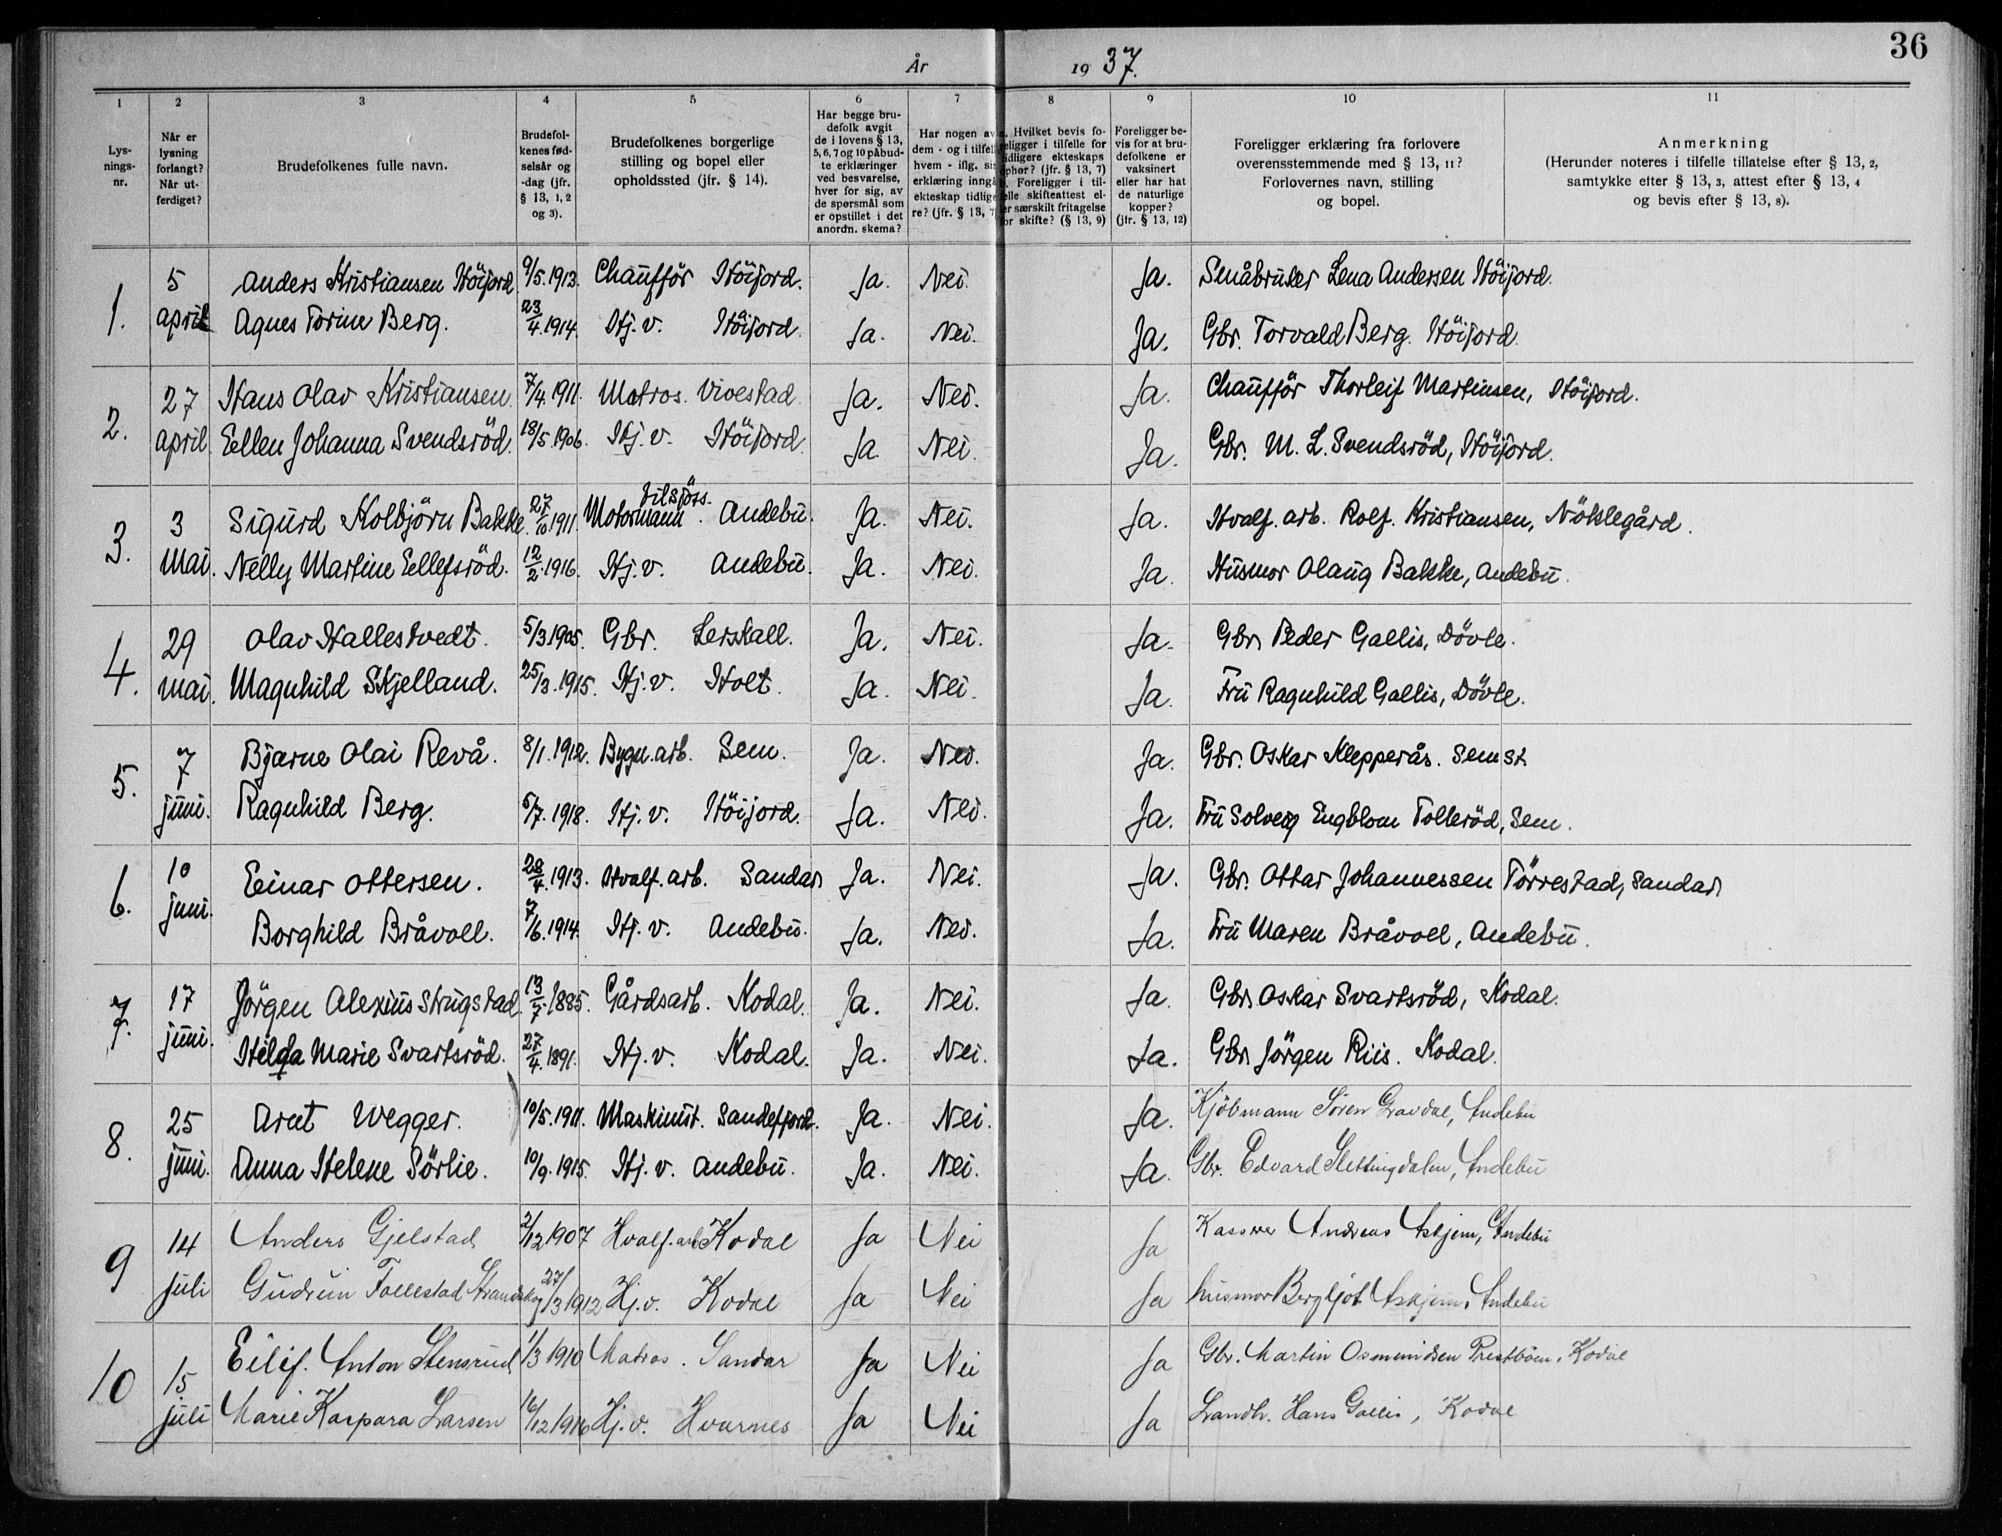 36
År 1937.
1 2 3 4 5 6 7 8 9 10 11
Lysningsnr.
Når er lysning forlangt? Når utferdiget?
Brudefolkenes fulle navn.
Brudefolkenes fødselsår og -dag (jfr. § 13, 1, 2 og 3).
Brudefolkenes borgerlige stilling og bopel eller opholdssted (jfr. § 14).
Har begge brudefolk avgit de i lovens § 13, 5, 6, 7 og 10 påbudte erklæringer ved besvarelse, hver for sig, av de spørsmål som er opstillet i det anordn. skema?
Har nogen av dem - og i tilfelle hvem - iflg. sin erklæring inngått ekteskap tidligere? (jfr. § 13, 7)
a. Hvilket bevis foreligger i tilfelle for tidligere ekteskaps ophør? (jfr. § 13, 7) Foreligger i tilfelle skifteattest eller særskilt fritagelse for skifte? (§ 13, 9)
Foreligger bevis for at brudefolkene er vaksinert eller har hat de naturlige kopper? (jfr. § 13, 12)
Foreligger erklæring fra forlovere overensstemmende med § 13, 11? Forlovernes navn, stilling og bopel.
Anmerkning (Herunder noteres i tilfelle tillatelse efter § 13, 2, samtykke efter § 13, 3, attest efter § 13, 4 og bevis efter § 13, 8).
1. 5 Anders Kristiansen Höijord 9/5.1913. Chaufför Höijord. Ja. Nei. Ja. Småbruker Lena Andersen Höijord.
april Agnes Torine Berg. 23/4.1914. Hj.v. Höijord. Ja. Nei. Ja. Gbr. Torvald Berg. Höijord.
2. 27 Hans Olav Kristiansen 7/4.1911. Matros. Vivestad Ja. Nei. Ja. Chaufför Thorleif Martinsen, Höijord.
april. Eellen Johanna Svendsröd. 18/5.1906. Hj.v. Höijord Ja Nei. Ja. Gbr. M. L. Svendsröd, Höijord.
3. 3 Sigurd Kolbjörn Bakke. 27/10.1911. Motormann tilsjøss. Andebu. Ja. Nei. Ja. Hvalf. arb. Rolf. Kristiansen, Nöklegård.
Mai. Nelly Martine Eellefsröd. 12/2.1916. Hj.v. Andebu. Ja. Nei. Ja. Husmor Olaug Bakke, Andebu.
4. 29 Olav Hallestvedt. 5/3 1905. Gbr. Lerskall. Ja. Nei. Ja. Gbr. Peder Gallis, Dövle.
mai. Magnhild Skjelland. 25/3.1915. Hj.v. Holt. Ja. Nei. Ja. Fru Ragnhild Gallis, Dövle.
5. 7 Bjarne Olai Revå. 8/1.1912. Bygn.arb. Sem. Ja. Nei. Ja. Gbr. Oskar Klepperås. Sem st
juni. Ragnhild Berg. 5/7.1918. Hj.v. Höijord. Ja. Nei. Ja. Fru Solveig Engblom Tolleröd, Sem.
6. 10 Eeinar Ottersen. 28/4.1913. Hvalf.arb. Sandar Ja. Nei. Ja. Gbr. Ottar Johannessen Törrestad, Sandar
juni. Borghild Bråvoll. 7/6.1914. Hj.v. Andebu. Ja. Nei. Ja. Fru Maren Bråvoll, Andebu.
7. 17 Jörgen Alexius Skugstad 13/7.1885. Gårdsarb. Kodal. Ja. Nei. Ja. Gbr. Oskar Svartsröd, Kodal.
juni. Helga Marie Svartsröd. 27/4.1891. Hj.v. Kodal. Ja. Nei. Ja. Gbr. Jörgen Riis. Kodal.
8. 25 Arnt Wegger. 10/5.1911. Maskinist. Sandefjord. Ja. Nei. Ja. Kjöbmann Sören Gravdal, Andebu
juni. Anna Helene Sörlie. 10/9.1915. Hj.v. Andebu. Ja. Nei. Ja. Gbr. Edvard Slettingdalen, Andebu
9 14 Anders Gjelstad 2/12 1907 Hvalf.arb Kodal Ja Nei Ja Kasserer Andreas Askjem, Andebu
juli Gudrun Follestad Strandskog 27/3 1912 Hj.v. Kodal Ja Nei Ja husmor Bergljot Askjem, Andebu
10 15 Eilif. Anton Stensrud 1/3 1910 Matros. Sandar Ja Nei Ja Gbr. Martin Osmundsen Prestbøen, Kodal
juli Marie Kaspara Larsen 16/12 1916 Hj.v. Hvarnes Ja Nei Ja Landh. Hans Gallis, Kodal